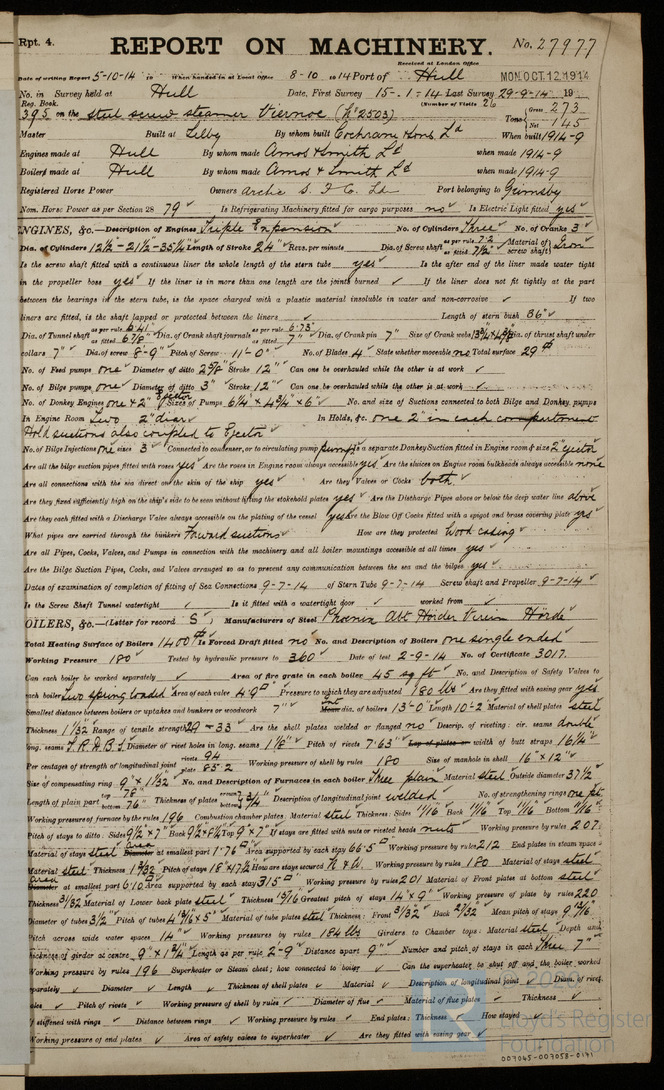 Rpt. 4.
REPORT ON MACHINERY.
No. 27977
Received at London Office
Date of writing Report 5-10-14 to When handed in at Local Office 8-10 to 14 Port of Hull
MON. OCT. 12 1914
No. in Survey held at Hull Date, First Survey 15-1-14 Last Survey 29-9-14 19
Reg. Book. (Number of Visits 26
395 on the steel screw steamer Viernoe (No 2503) Tons { Gross 273 Net 145
Master Built at Selby By whom built Cochrane & Sons Ld When built 1914-9
Engines made at Hull By whom made Amos & Smith Ld when made 1914-9
Boilers made at Hull By whom made Amos & Smith Ld when made 1914-9
Registered Horse Power Owners Arctic S. F. Co. Ld Port belonging to Grimsby
Nom. Horse Power as per Section 28 79 Is Refrigerating Machinery fitted for cargo purposes no Is Electric Light fitted yes
ENGINES, &c.—Description of Engines Triple Expansion No. of Cylinders Three No. of Cranks 3
Dia. of Cylinders 12½ - 21½ - 35¼ Length of Stroke 24" Revs. per minute Dia. of Screw shaft as per rule 7.2 as fitted 7½" Material of screw shaft Iron
Is the screw shaft fitted with a continuous liner the whole length of the stern tube yes Is the after end of the liner made water tight
in the propeller boss yes If the liner is in more than one length are the joints burned ✓ If the liner does not fit tightly at the part
between the bearings in the stern tube, is the space charged with a plastic material insoluble in water and non-corrosive ✓ If two
liners are fitted, is the shaft lapped or protected between the liners ✓ Length of stern bush 36"
Dia. of Tunnel shaft as per rule 6.41 as fitted 6⅞" Dia. of Crank shaft journals as per rule 6.73 as fitted 7" Dia. of Crank pin 7" Size of Crank webs Dia. of thrust shaft under
collars 7" Dia. of screw 8-9" Pitch of Screw 11'-0" No. of Blades 4 State whether moveable no Total surface 29
No. of Feed pumps one Diameter of ditto 2⅝" Stroke 12" Can one be overhauled while the other is at work ✓
No. of Bilge pumps one Diameter of ditto 3" Stroke 12" Can one be overhauled while the other is at work ✓
No. of Donkey Engines one & 2" Ejector Sizes of Pumps 6¼ x 4¾ x 6" No. and size of Suctions connected to both Bilge and Donkey pumps
In Engine Room Two 2" diar In Holds, &c. one 2" in each compartment
Hold suctions also coupled to Ejector
No. of Bilge Injections one sizes 3" Connected to condenser, or to circulating pump pump Is a separate Donkey Suction fitted in Engine room & size 2" ejector
Are all the bilge suction pipes fitted with roses yes Are the roses in Engine room always accessible yes Are the sluices on Engine room bulkheads always accessible none
Are all connections with the sea direct on the skin of the ship yes Are they Valves or Cocks both
Are they fixed sufficiently high on the ship's side to be seen without lifting the stokehold plates yes Are the Discharge Pipes above or below the deep water line above
Are they each fitted with a Discharge Valve always accessible on the plating of the vessel yes Are the Blow Off Cocks fitted with a spigot and brass covering plate yes
What pipes are carried through the bunkers Forward suctions How are they protected Wood casing
Are all Pipes, Cocks, Valves, and Pumps in connection with the machinery and all boiler mountings accessible at all times yes
Are the Bilge Suction Pipes, Cocks, and Valves arranged so as to prevent any communication between the sea and the bilges yes
Dates of examination of completion of fitting of Sea Connections 9-7-14 of Stern Tube 9-7-14 Screw shaft and Propeller 9-7-14
Is the Screw Shaft Tunnel watertight ✓ Is it fitted with a watertight door ✓ worked from ✓
OILERS, &c.—(Letter for record S) Manufacturers of Steel Phoenix Abt Hörder Verein Hörde
Total Heating Surface of Boilers 1400 Is Forced Draft fitted no No. and Description of Boilers one single ended
Working Pressure 180 Tested by hydraulic pressure to 360 Date of test 2-9-14 No. of Certificate 3017
Can each boiler be worked separately ✓ Area of fire grate in each boiler 45 sq ft No. and Description of Safety Valves to
each boiler Two spring loaded Area of each valve 4.9 Pressure to which they are adjusted 180 lbs Are they fitted with easing gear yes
Smallest distance between boilers or uptakes and bunkers or woodwork 7" dia. of boilers 13'-0" Length 10-2 Material of shell plates steel
Thickness 1 1/32 Range of tensile strength 29-33 Are the shell plates welded or flanged no Descrip. of riveting: cir. seams double
long. seams T.R.D.B.S. Diameter of rivet holes in long. seams 1⅛" Pitch of rivets 7.63" Lap of plates or width of butt straps 16¼"
Per centages of strength of longitudinal joint rivets 94 plate 85.2 Working pressure of shell by rules 180 Size of manhole in shell 16" x 12"
Size of compensating ring 9" x 1 1/32" No. and Description of Furnaces in each boiler Three plain Material steel Outside diameter 37½"
Length of plain part top 78" bottom 76" Thickness of plates crown bottom Description of longitudinal joint welded No. of strengthening rings one pt
Working pressure of furnace by the rules 196 Combustion chamber plates: Material steel Thickness: Sides 11/16" Back 11/16" Top 11/16" Bottom
Pitch of stays to ditto: Sides 9½ x 7" Back Top 9" x 7" If stays are fitted with nuts or riveted heads nuts Working pressure by rules 207
Material of stays steel Area at smallest part 1.76 Area supported by each stay 66.5 Working pressure by rules 212 End plates in steam space:
Material steel Thickness Pitch of stays How are stays secured N & W. Working pressure by rules 180 Material of stays steel
Area at smallest part 6.10 Area supported by each stay 315 Working pressure by rules 201 Material of Front plates at bottom steel
Thickness Material of Lower back plate steel Thickness 13/16 Greatest pitch of stays 14" x 9" Working pressure of plate by rules 220
Diameter of tubes 3½" Pitch of tubes Material of tube plates steel Thickness: Front Back Mean pitch of stays
Pitch across wide water spaces 14" Working pressures by rules 184 lbs Girders to Chamber tops: Material steel Depth and
thickness of girder at centre 9" x 1¾" Length as per rule 2-9 Distance apart 9" Number and pitch of stays in each Three 7"
Working pressure by rules 196 Superheater or Steam chest; how connected to boiler ✓ Can the superheater be shut off and the boiler worked
separately ✓ Diameter ✓ Length ✓ Thickness of shell plates ✓ Material ✓ Description of longitudinal joint ✓ Diam. of rivet
holes ✓ Pitch of rivets ✓ Working pressure of shell by rules ✓ Diameter of flue ✓ Material of flue plates ✓ Thickness ✓
If stiffened with rings ✓ Distance between rings ✓ Working pressure by rules ✓ End plates: Thickness ✓ How stayed ✓
Working pressure of end plates ✓ Area of safety valves to superheater ✓ Are they fitted with easing gear ✓
© 2020
Lloyd's Register
Foundation
007045-007058-0171